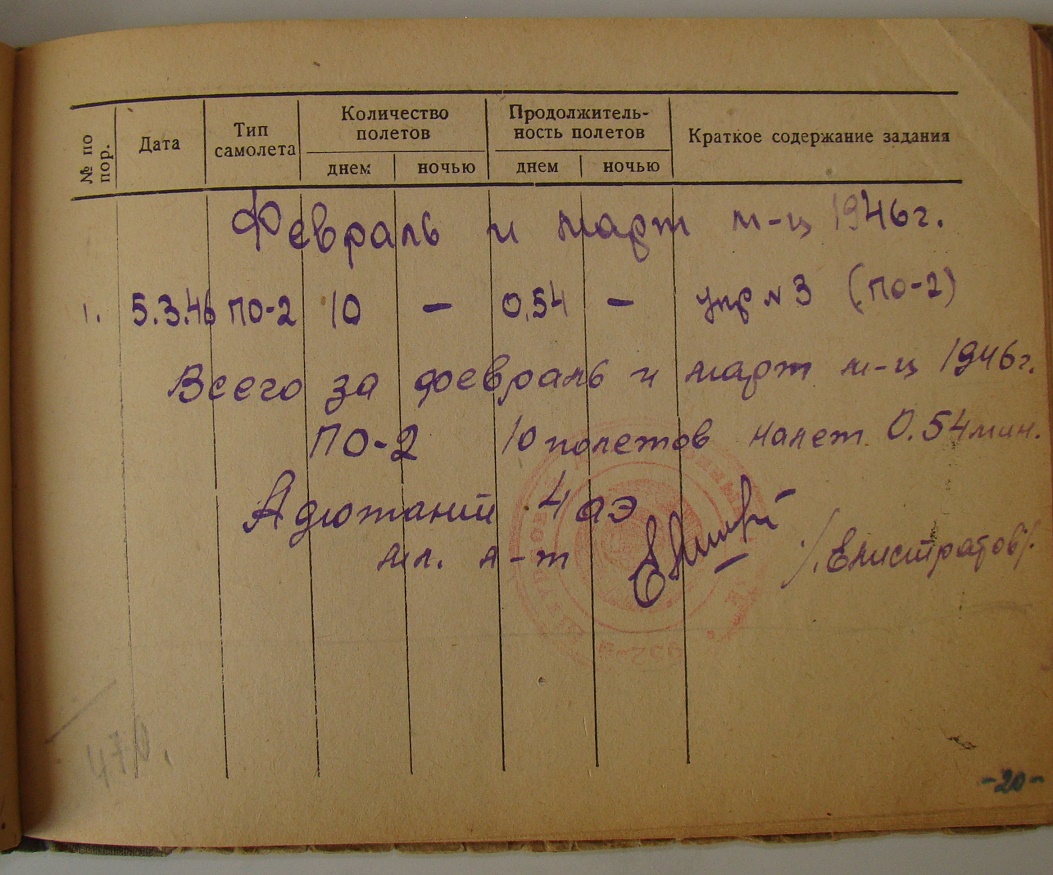 № по пор. Дата Тип самолета Количество полетов Продолжительность полетов Краткое содержание задания
днем ночью днем ночью
Февраль и март м-ц 1946г.
1. 5.3.46 ПО-2 10 – 0,54 – упр №3 (ПО-2)
Всего за февраль и март м-ц 1946г.
ПО-2 10 полетов налет 0.54мин.
Адютант 4 аэ
мл. л-т /.Елистратов/.
-20-